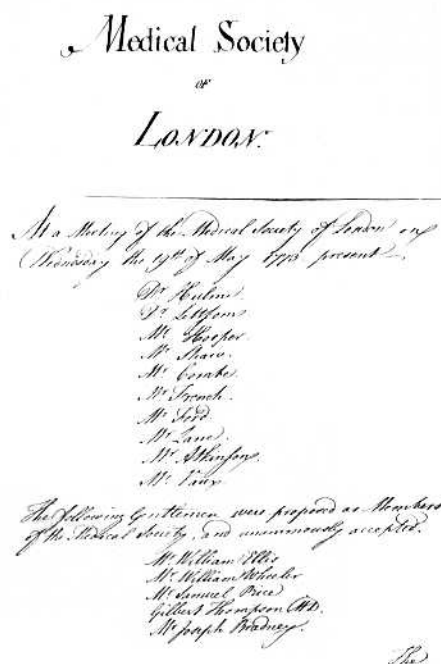 Medical Society
OF
LONDON.
At a Meeting of the Medical Society of London on
Wednesday the 19th of May 1773 present.
Dr. Hulme.
Dr. Lettsom
Mr. Hooper.
Mr. Shaw.
Mr.
Mr. French.
Mr. Ford.
Mr. Lane.
Mr. Atkinson.
Mr. Vaux.
The following Gentlemen were proposed as Members
of the Medical Society, and unanimously accepted.
Mr. William Ellis
Mr. William Wheeler
Mr. Samuel Price
Gilbert Thompson MD.
Mr. Joseph Bradney.
The